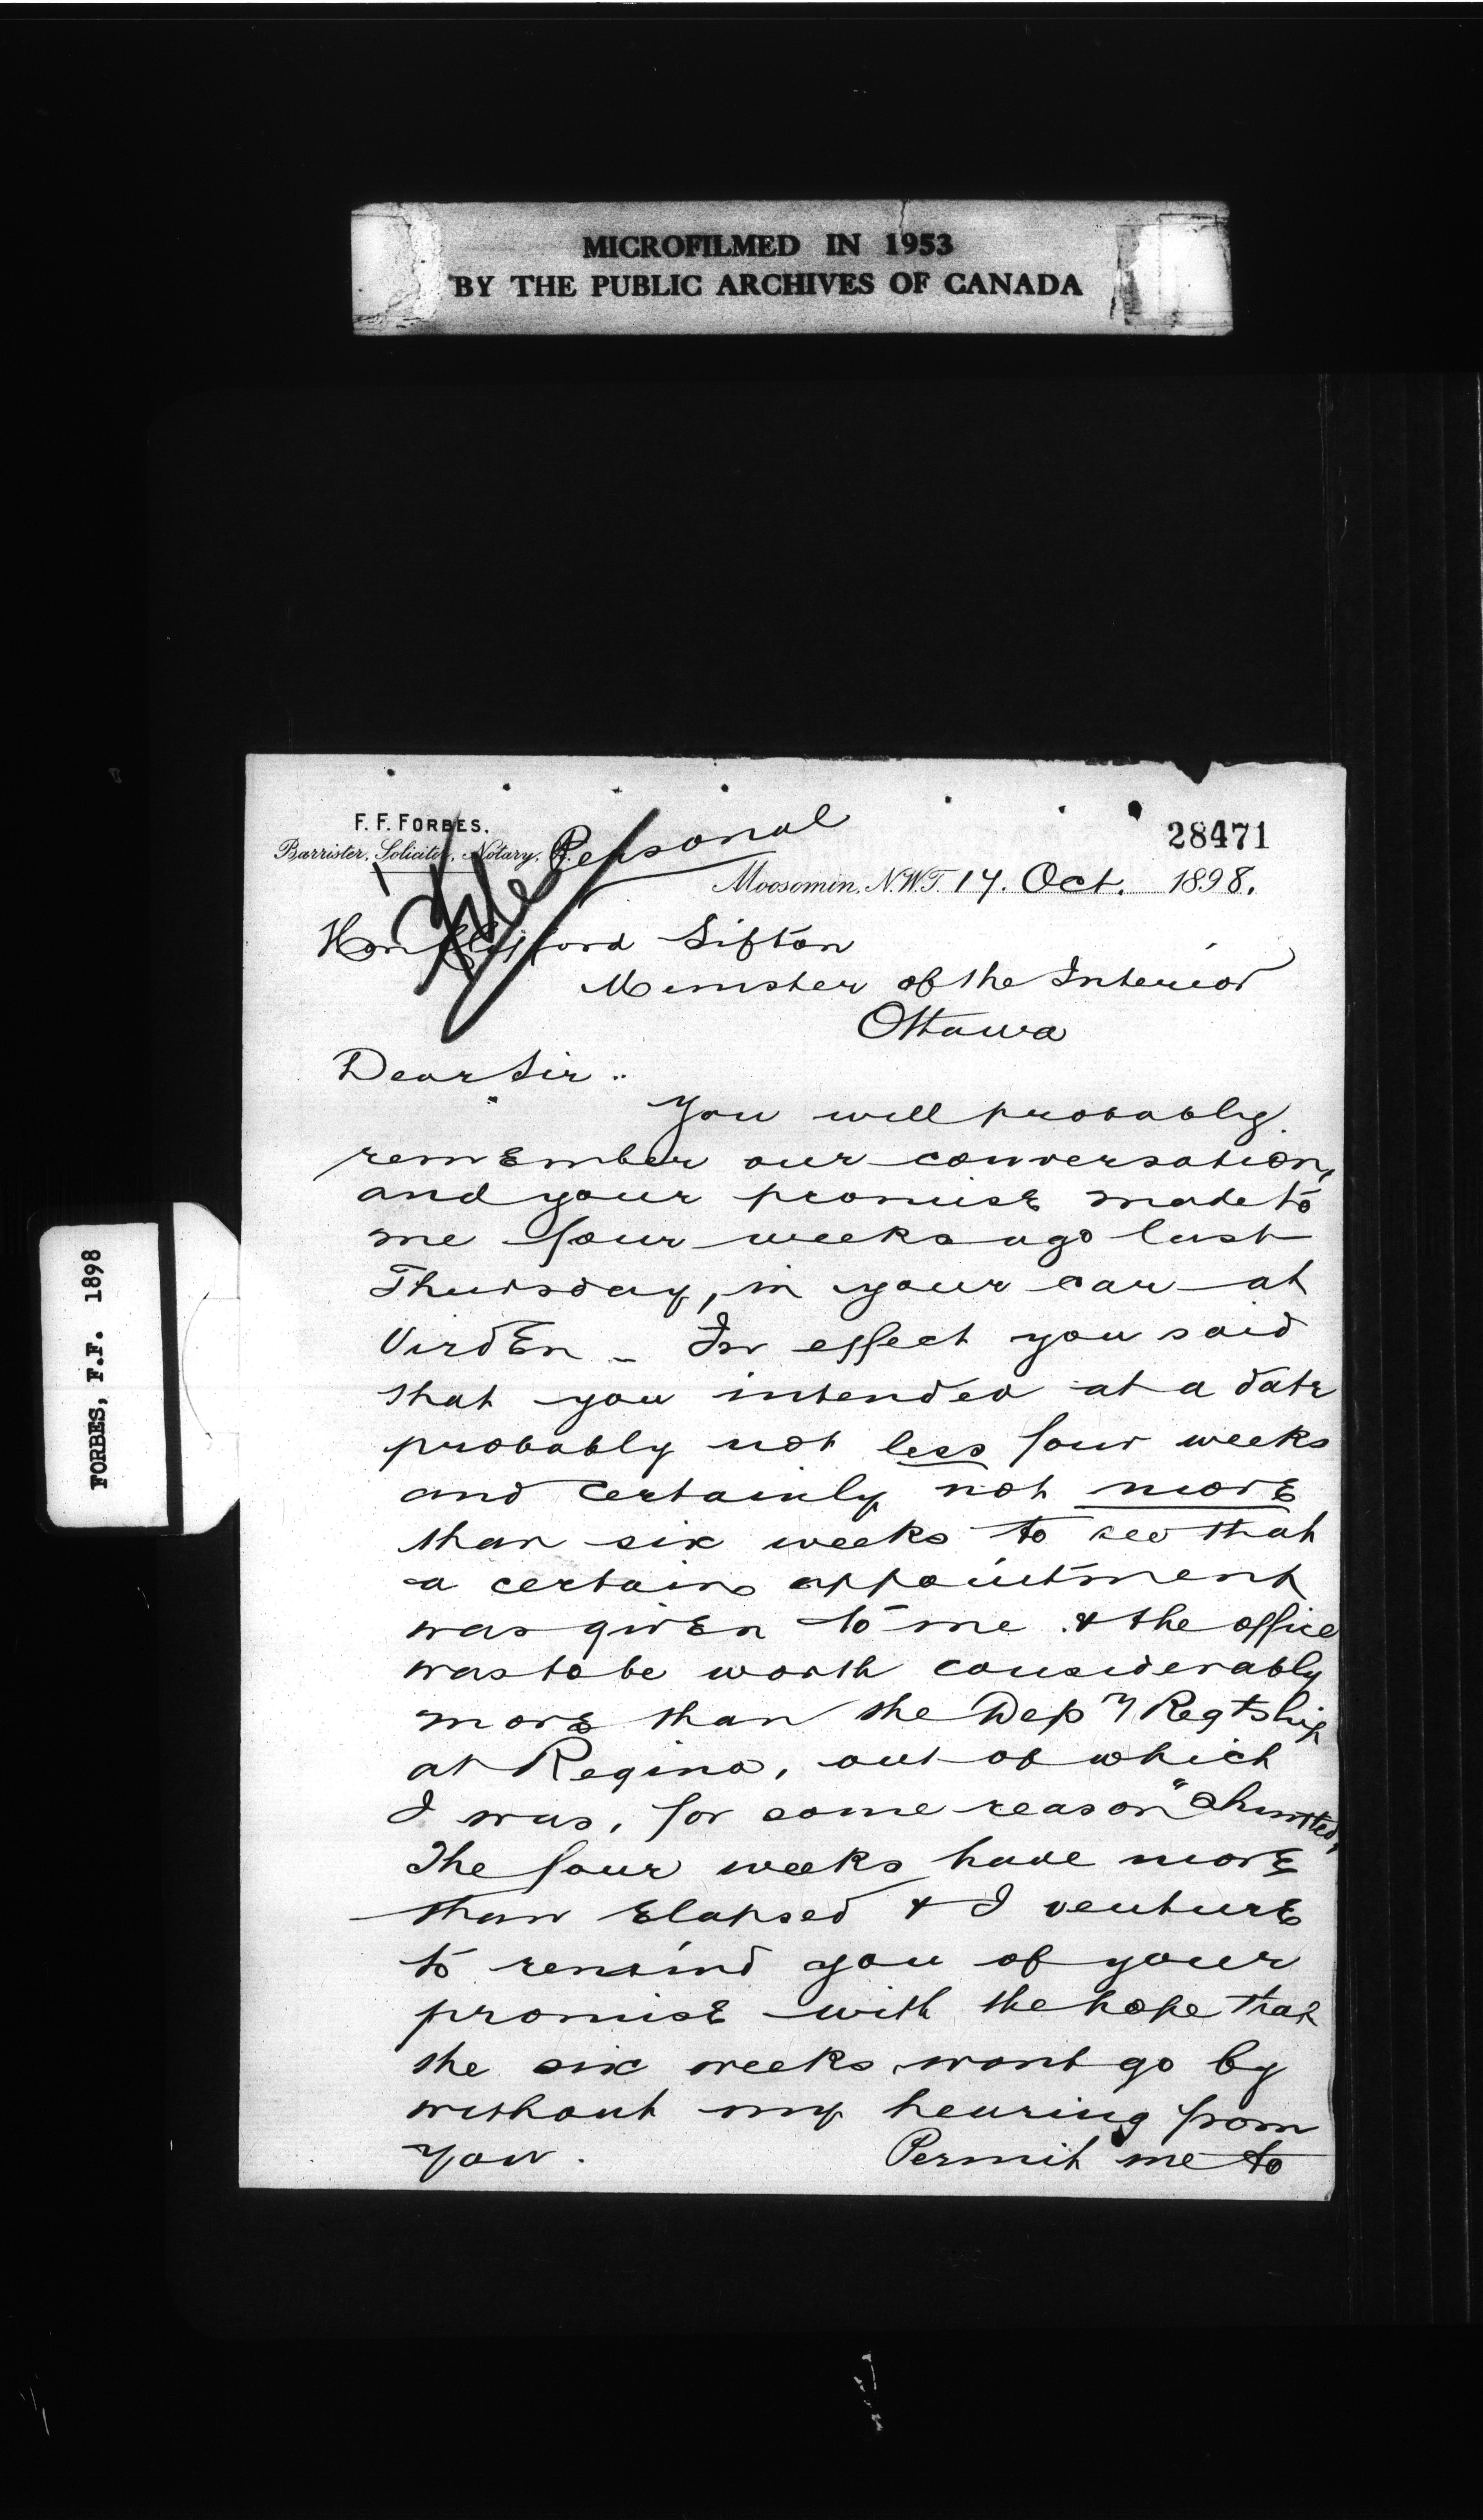 MICROFILMED IN 1953
BY THE PUBLIC ARCHIVES OF CANADA
FORBES, F.F. 1898
F. F. FORBES.
Barrister, Solicitor, Notary,
Personal
28471
File
Moosomin, N.W.T. 17. Oct. 1898.
Hon Clifford Sifton
Minister of the Interior
Ottawa
Dear Sir..
You will probably
remember our conversation,
and your promise made to
me four weeks ago last
Thursday, in your car at
Virden - In effect you said
that you intended at a date
probably not less four weeks
and certainly not more
than six weeks to see that
a certain appointment
was given to me & the office
was to be worth considerably
more than the Depy Regtship
at Regina, out of which
I was, for some reason "shunted"
The four weeks have more
than elapsed & I venture
to remind you of your
promise with the hope that
the six weeks wont go by
without my hearing from
you. Permit me to